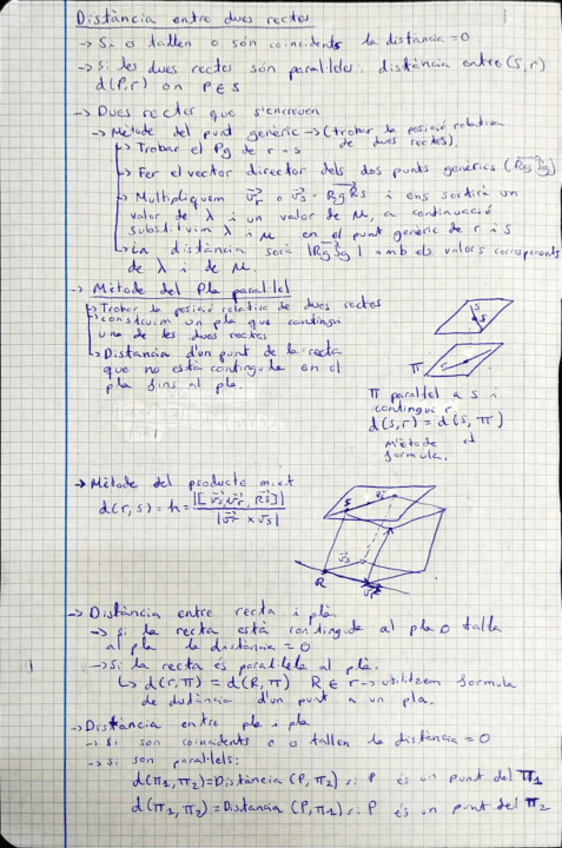 Distància entre dues rectes
→ Si es tallen o són coincidents la distancia = 0
→ Si les dues rectes són paral·leles: distància entre (s, r)
d(P, r) on P ∈ s
→ Dues rectes que s'encreuen
→ Mètode del punt genèric → (trobar la posició relativa
de dues rectes).
↳ Trobar el Pg de r i s
↳ Fer el vector director dels dos punts genèrics (RgSg)
↳ Multipliquem vr o vs · RgSg i ens sortirà un
valor de λ i un valor de μ, a continuació
substituïm λ i μ en el punt genèric de r i s
↳ La distància serà |RgSg| amb els valors corresponents
de λ i de μ.
→ Mètode del Pla paral·lel
↳ Trobar la posició relativa de dues rectes
↳ construïm un pla que contingui
una de les dues rectes
↳ Distancia d'un punt de la recta
que no està continguda en el
pla fins al pla.
s
s
π
r
π paral·lel a s i
contingui r
d(s, r) = d(s, π)
mètode
formula.
→ Mètode del producte mixt
d(r, s) = h = |[vs, vr, RS]| / |vr × vs|
S
vs
R
vr
→ Distància entre recta i pla.
→ Si la recta està continguda al pla o talla
al pla la distància = 0
→ Si la recta és paral·lela al pla.
↳ d(r, π) = d(R, π) R ∈ r → utilitzem formula
de distància d'un punt a un pla.
→ Distància entre pla i pla
→ Si son coincidents o es tallen la distància = 0
→ si son paral·lels:
d(π1, π2) = Distància (P, π2) si P és un punt del π1
d(π1, π2) = Distancia (P, π1) si P és un punt del π2